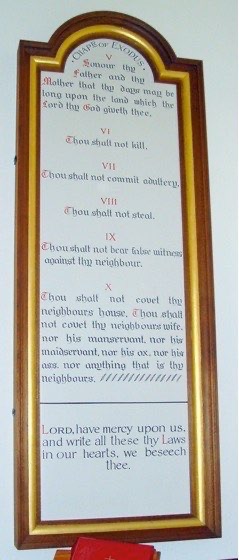 CHAP. OF EXODUS
V
Honour thy
Father and thy
Mother that thy days may be
long upon the land which the
Lord thy God giveth thee.
VI
Thou shalt not kill.
VII
Thou shalt not commit adultery.
VIII
Thou shalt not steal.
IX
Thou shalt not bear false witness
against thy neighbour.
X
Thou shalt not covet thy
neighbours house, Thou shalt
not covet thy neighbours wife,
nor his manservant, nor his
maidservant, nor his ox, nor his
ass, nor anything that is thy
neighbours.
LORD, have mercy upon us,
and write all these thy Laws
in our hearts, we beseech
thee.